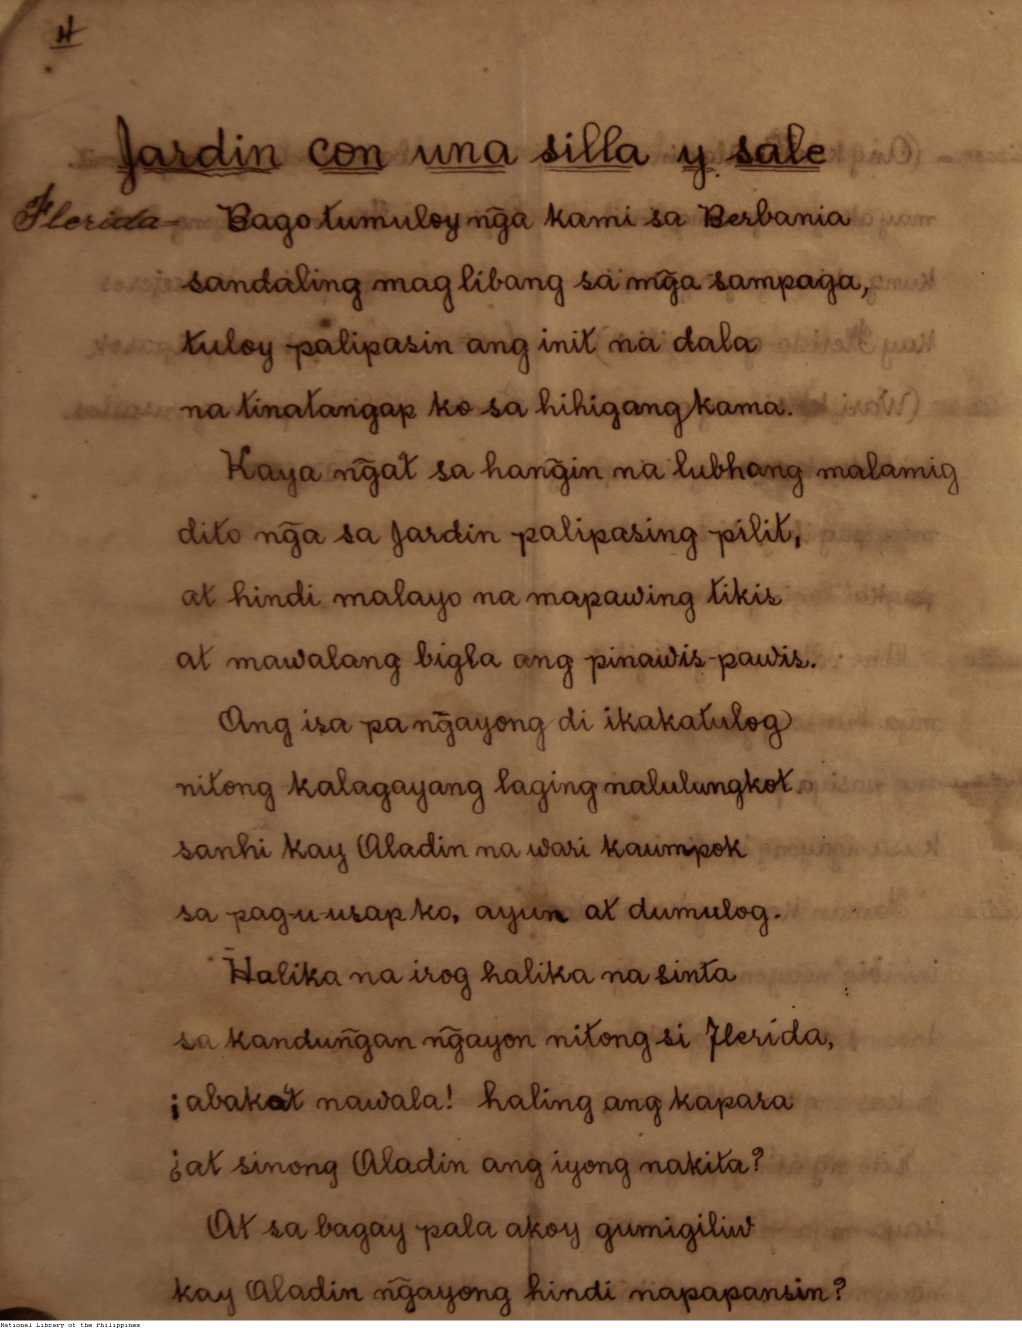 4
Jardin con una silla y sale
Flerida- Bago tumuloy ng̃a kami sa Berbania
sandaling mag libang sa mg̃a sampaga,
tuloy palipasin ang init na dala
na tinatangap ko sa hihigang kama.
Kaya ng̃at sa hang̃in na lubhang malamig
dito ng̃a sa Jardin palipasing pilit,
at hindi malayo na mapawing tikis
at mawalang bigla ang pinawis-pawis.
Ang isa pa ng̃ayong di ikakatulog
nitong kalagayang laging nalulungkot.
sanhi kay Aladin na wari kaumpok
sa pag-u-usap ko, ayun at dumulog.
Halika na irog halika na sinta
sa kandung̃an ng̃ayon nitong si Flerida,
¡abaka't nawala! haling ang kapara
¿at sinong Aladin ang iyong nakita?
At sa bagay pala akoy gumigiliw
kay Aladin ng̃ayong hindi napapansin?
National Library of the Philippines